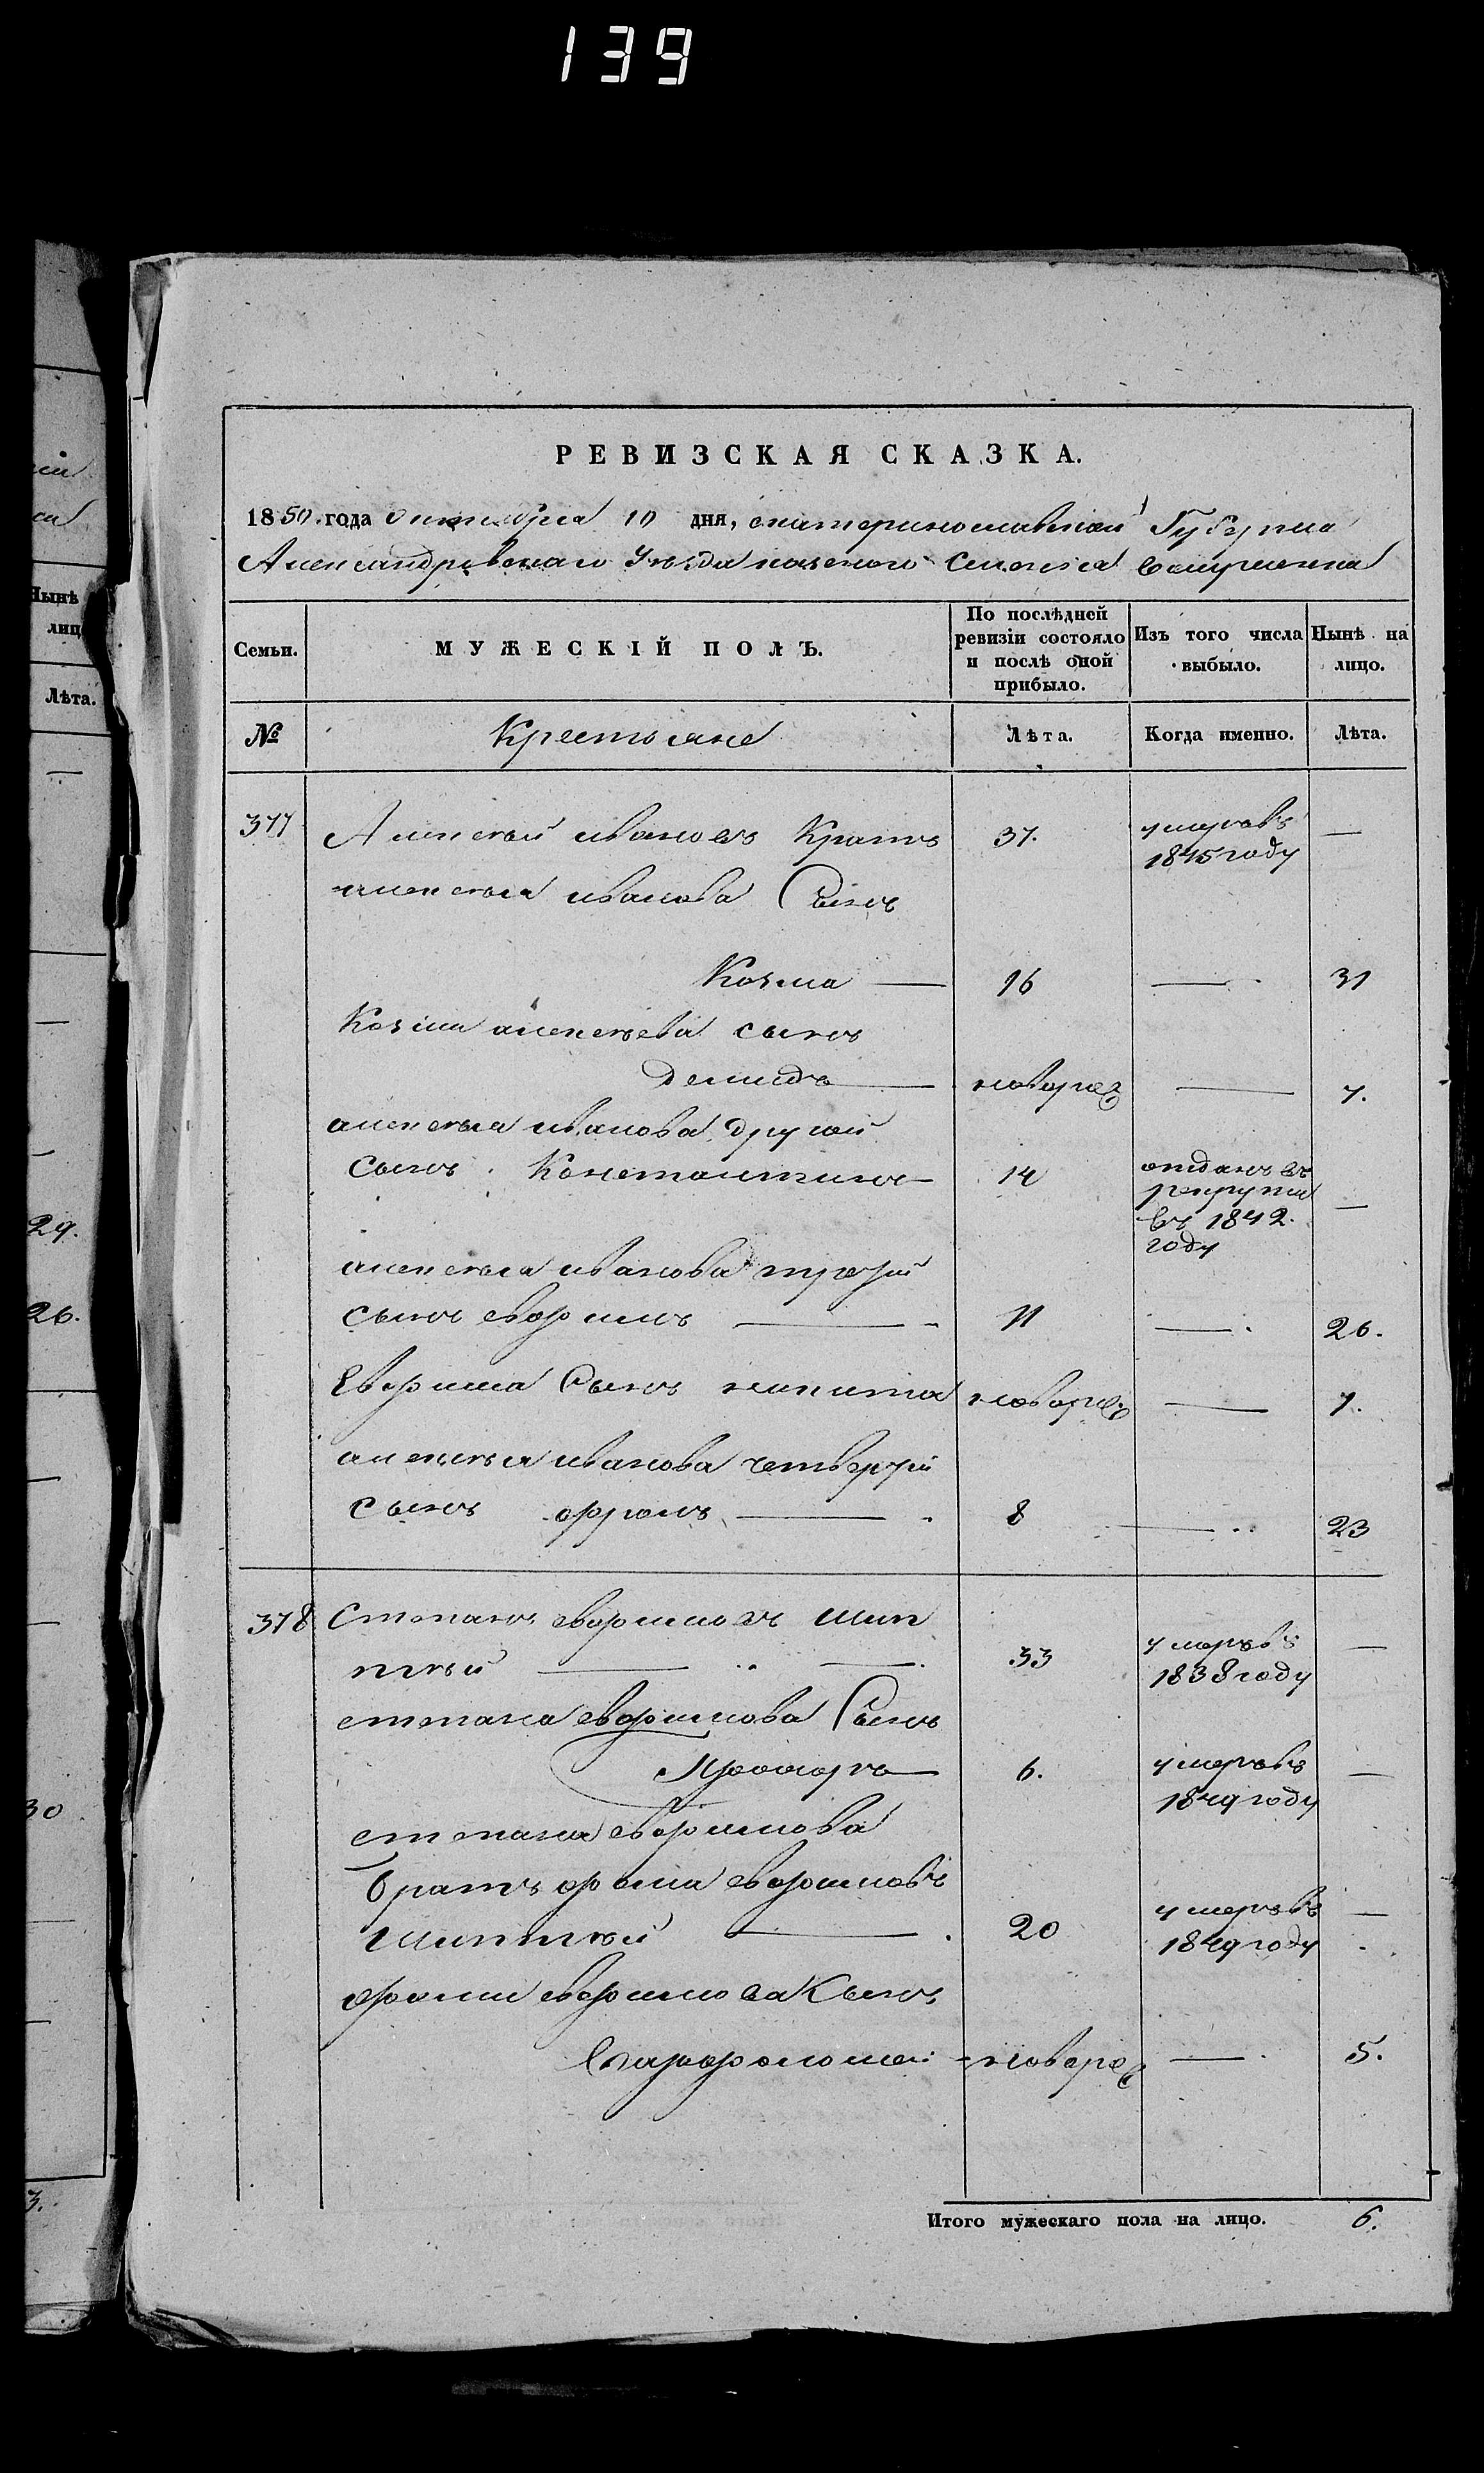 139
РЕВИЗСКАЯ СКАЗКА.
1850 года октября 10 дня, екатеринославской Губерніи
Александровскаго Уѣзда казеннаго Селенія
Семьи.
МУЖЕСКІЙ ПОЛЪ.
По послѣдней ревизіи состояло и послѣ оной прибыло.
Изъ того числа выбыло.
Нынѣ на лицо.
№ Крестьяне Лѣта. Когда именно. Лѣта.
377 Алексѣй ивановъ Кратъ 37. умеръ въ 1845 году —
алексѣя иванова Сынъ
Козма — 16 — 31
Козми алексѣева сынъ
демидъ — новорож — 7.
алексѣя иванова другой
сынъ Константинъ — 14 отданъ въ рекруты въ 1842. году —
алексѣя иванова третій
сынъ ефимъ — 11 — 26.
Сынъ никита новорож — 7.
алексѣя иванова четвертій
сынъ — 8 — 23
378 Степанъ 33 умеръ въ 1838 году —
степана Сынъ
Прохоръ — 6. умеръ въ 1849 году —
степана
братъ фома
— 20 умеръ въ 1849 году —
фоми сынъ
варфоломей — новорож — 5.
Итого мужескаго пола на лицо. 6.
Нынѣ
лиц
Лѣта.
29.
26.
30
3.